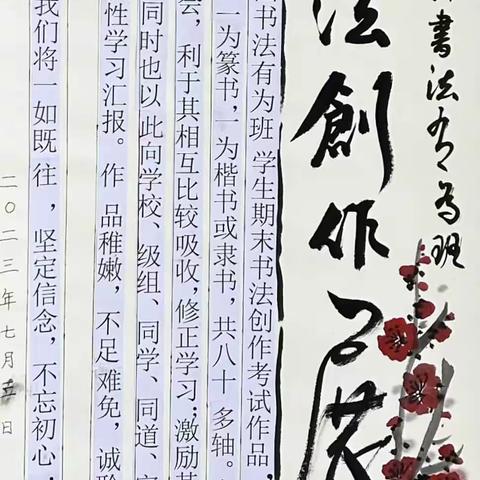 書法有为班
法創作展
书法有为班 学生期末书法创作考试作品,
一为篆书,一为楷书或隶书,共八十 多轴。
会,利于其相互比较吸收,修正学习;激励其
同时也以此向学校、级组、同学、同道、家
性学习汇报。作 品稚嫩,不足难免,诚聆
我们将一如既 往,坚定信念,不忘初心,
二〇二三年七月五日